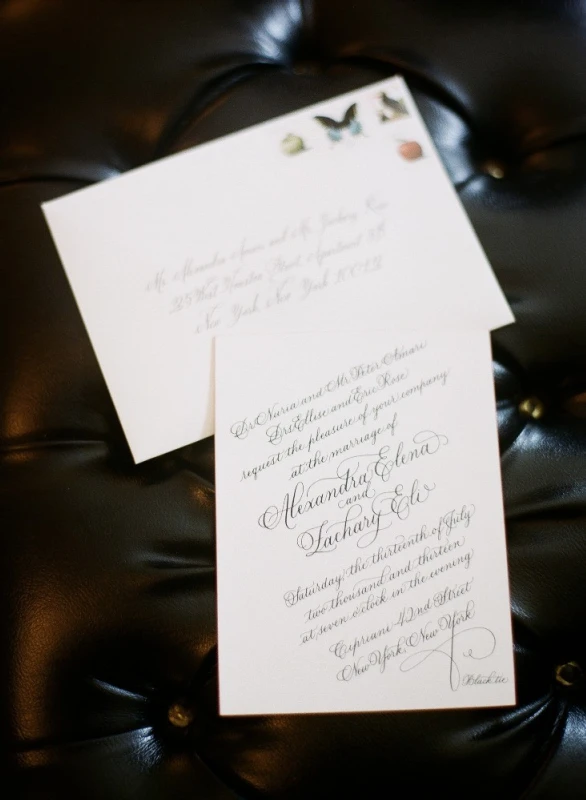 Ms. Alexandra Amari and Mr. Zachary
West Houston Street, Apartment
New York, New York
Dr. Nuria and Mr. Peter Amari
Drs. Ellise and Eric Rose
request the pleasure of your company
at the marriage of
Alexandra Elena
and
Zachary Eli
Saturday, the thirteenth of July
two thousand and thirteen
at seven o'clock in the evening
Cipriani 42nd Street
New York, New York
Black tie